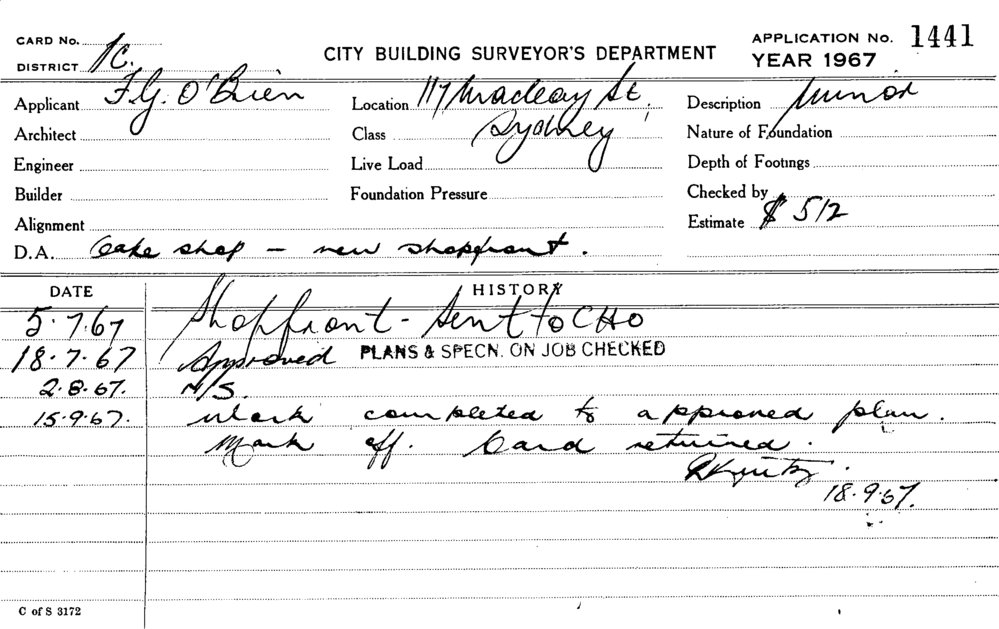 CARD No.
DISTRICT 1C.
CITY BUILDING SURVEYOR'S DEPARTMENT
APPLICATION No. 1441
YEAR 1967
Applicant F.G. O'Brien
Location 117 Macleay St.
Sydney
Description Minor
Architect
Class
Nature of Foundation
Engineer
Live Load
Depth of Footings
Builder
Foundation Pressure
Checked by
Alignment
Estimate $ 512
D.A. Cake shop – new shopfront.
DATE HISTORY
5.7.67 Shopfront - Sent to CHO
18.7.67 Approved PLANS & SPECN. ON JOB CHECKED
2.8.67. N/S.
15.9.67. Work completed to approved plan.
Mark off. Card returned.
18.9.67.
C of S 3172